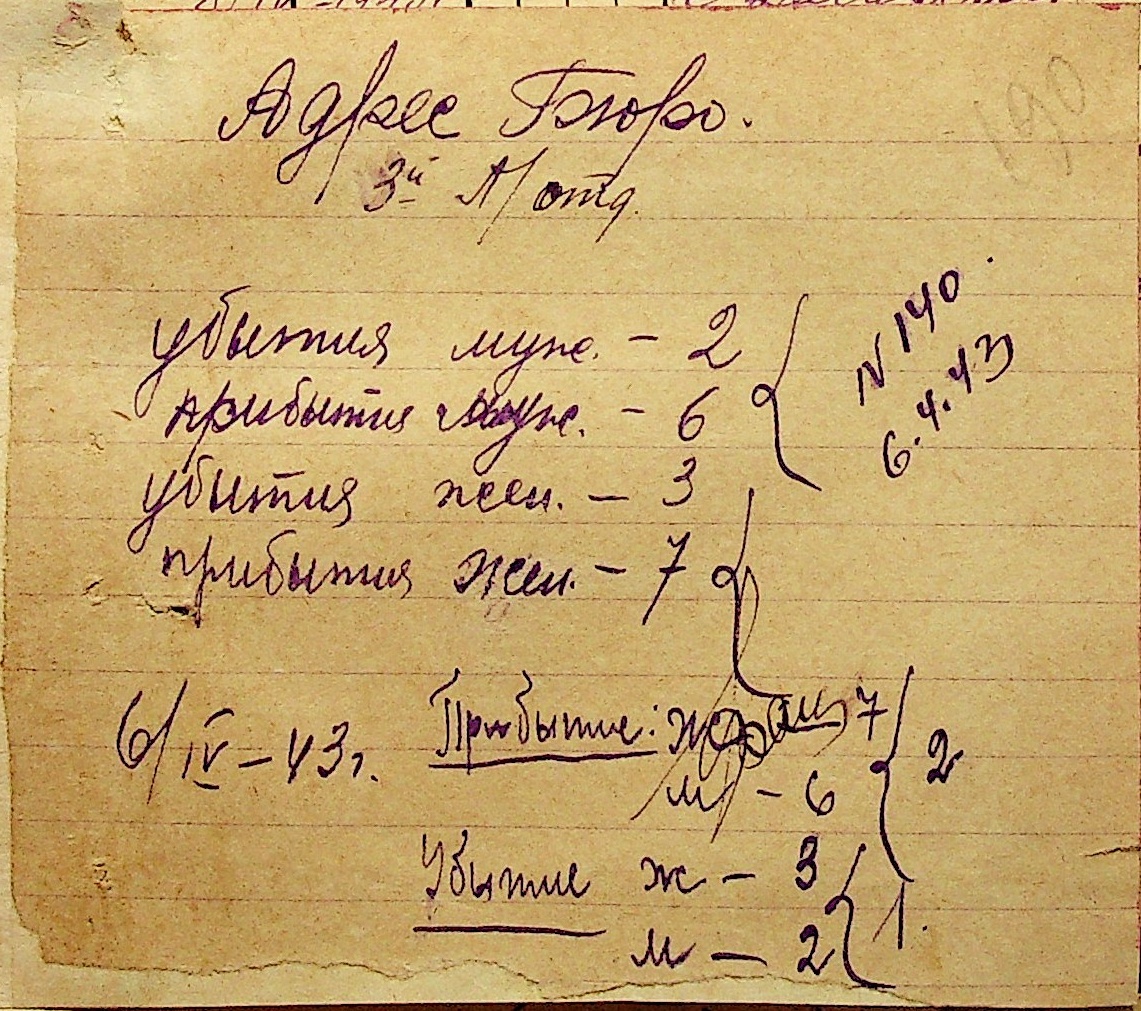 190
Адрес Бюро.
3й А/отд.
убытия муж. - 2
прибытия муж. - 6
N 140
6.4.43
убытия жен. - 3
прибытия жен. - 7
6/IV-43г.
Прибытие: ж 7
м - 6
2
Убытие ж - 3
м - 2
1.